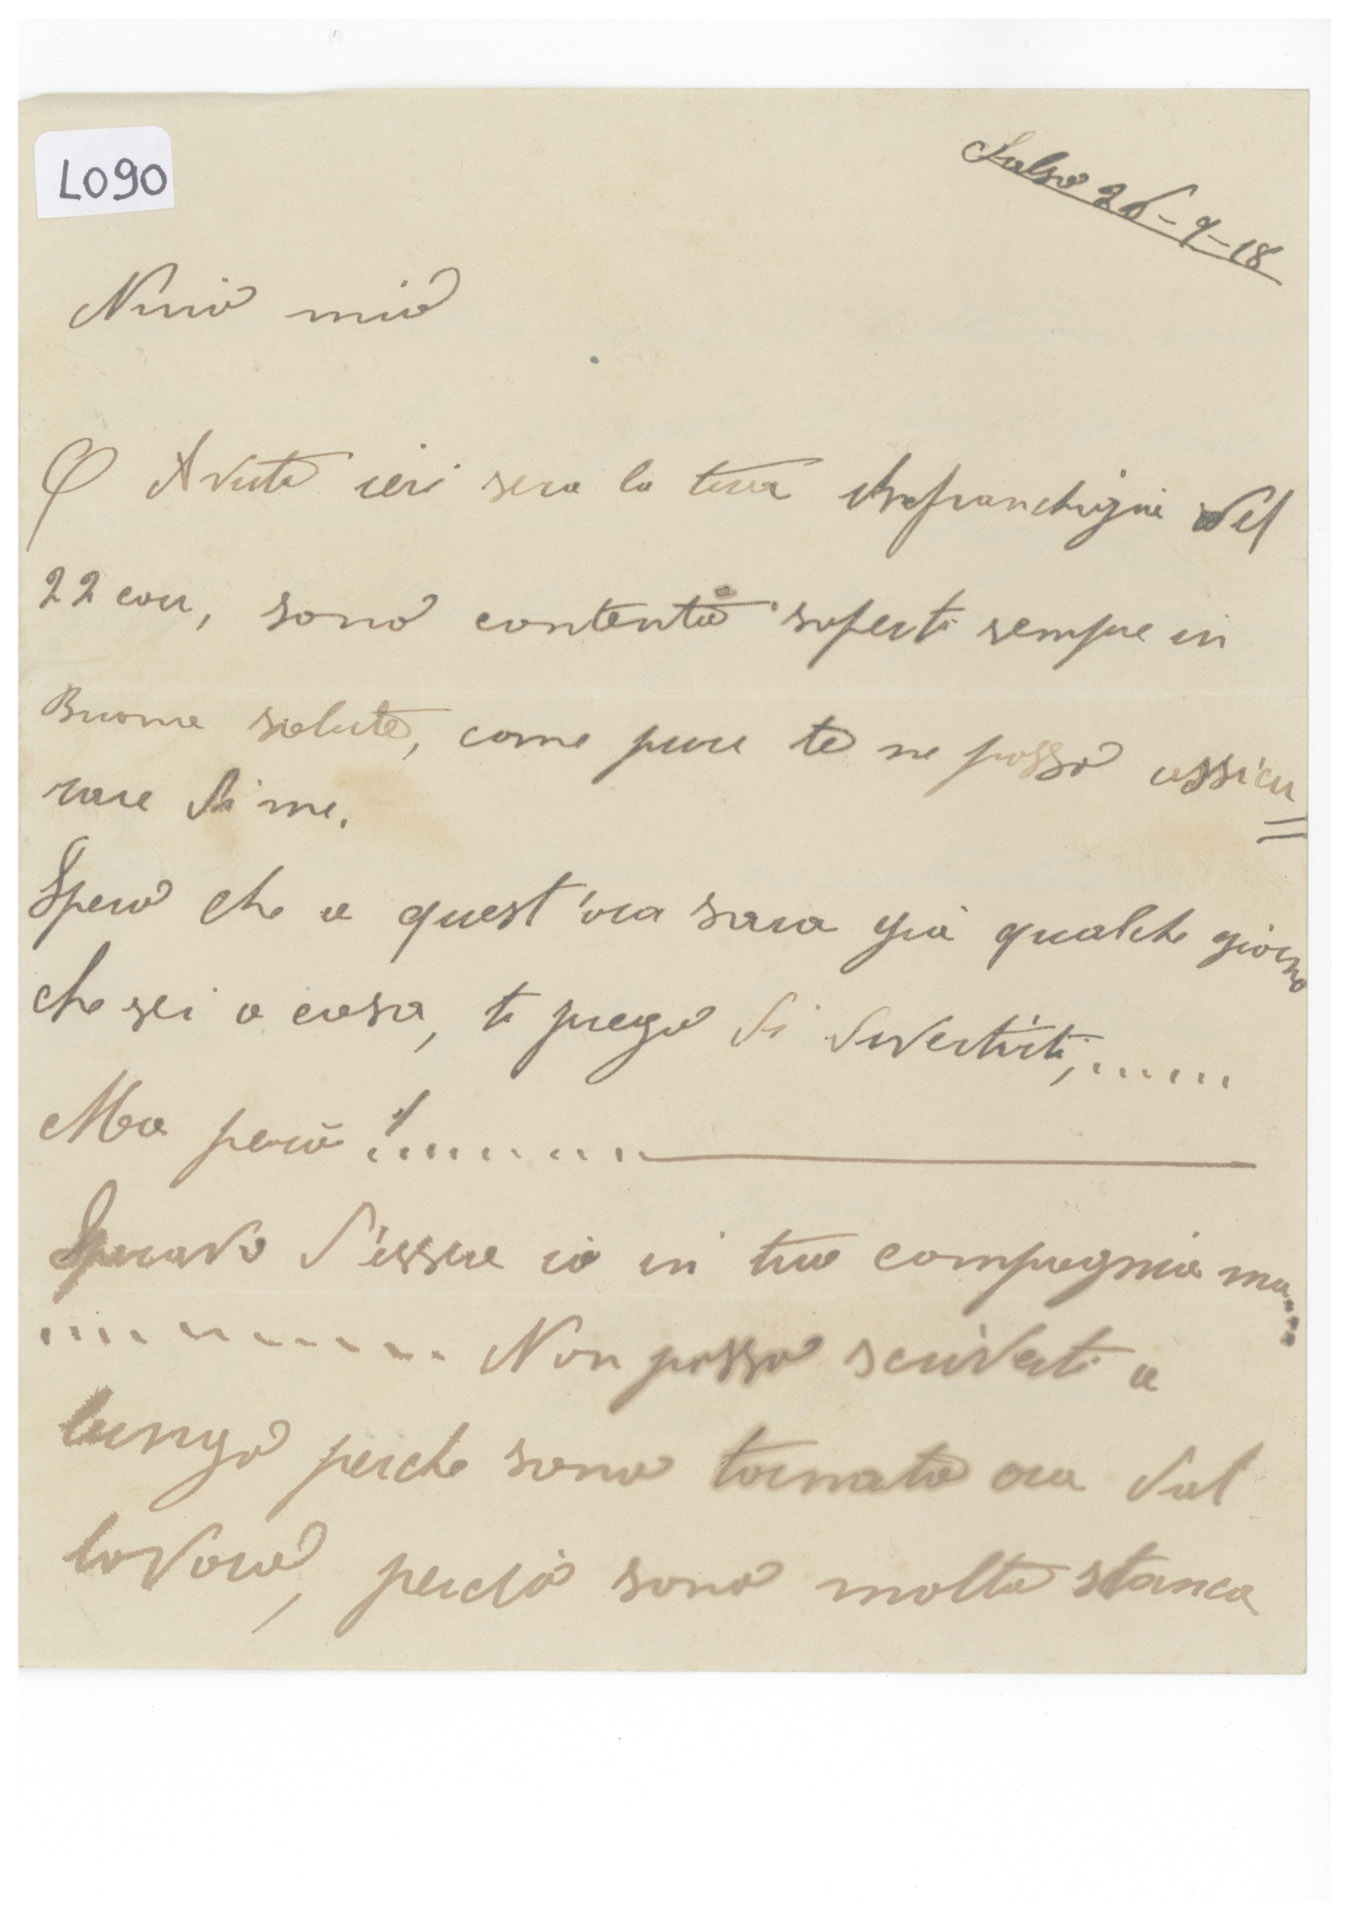 L090
Salso 26-9-18
Nino mio
O Avuta ieri sera la tua in franchigia del
22 corr, sono contenta saperti sempre in
Buona salute, come pure te ne posso assicu
rare di me.
Spero che a quest'ora sara già qualche giorno
che sei a casa, ti prego di divertirti,......
Ma però !........
Speravo d'essere io in tua compagnia ma....
.......... Non posso scriverti a
lungo perche sono tornata ora dal
lavoro, perciò sono molto stanca